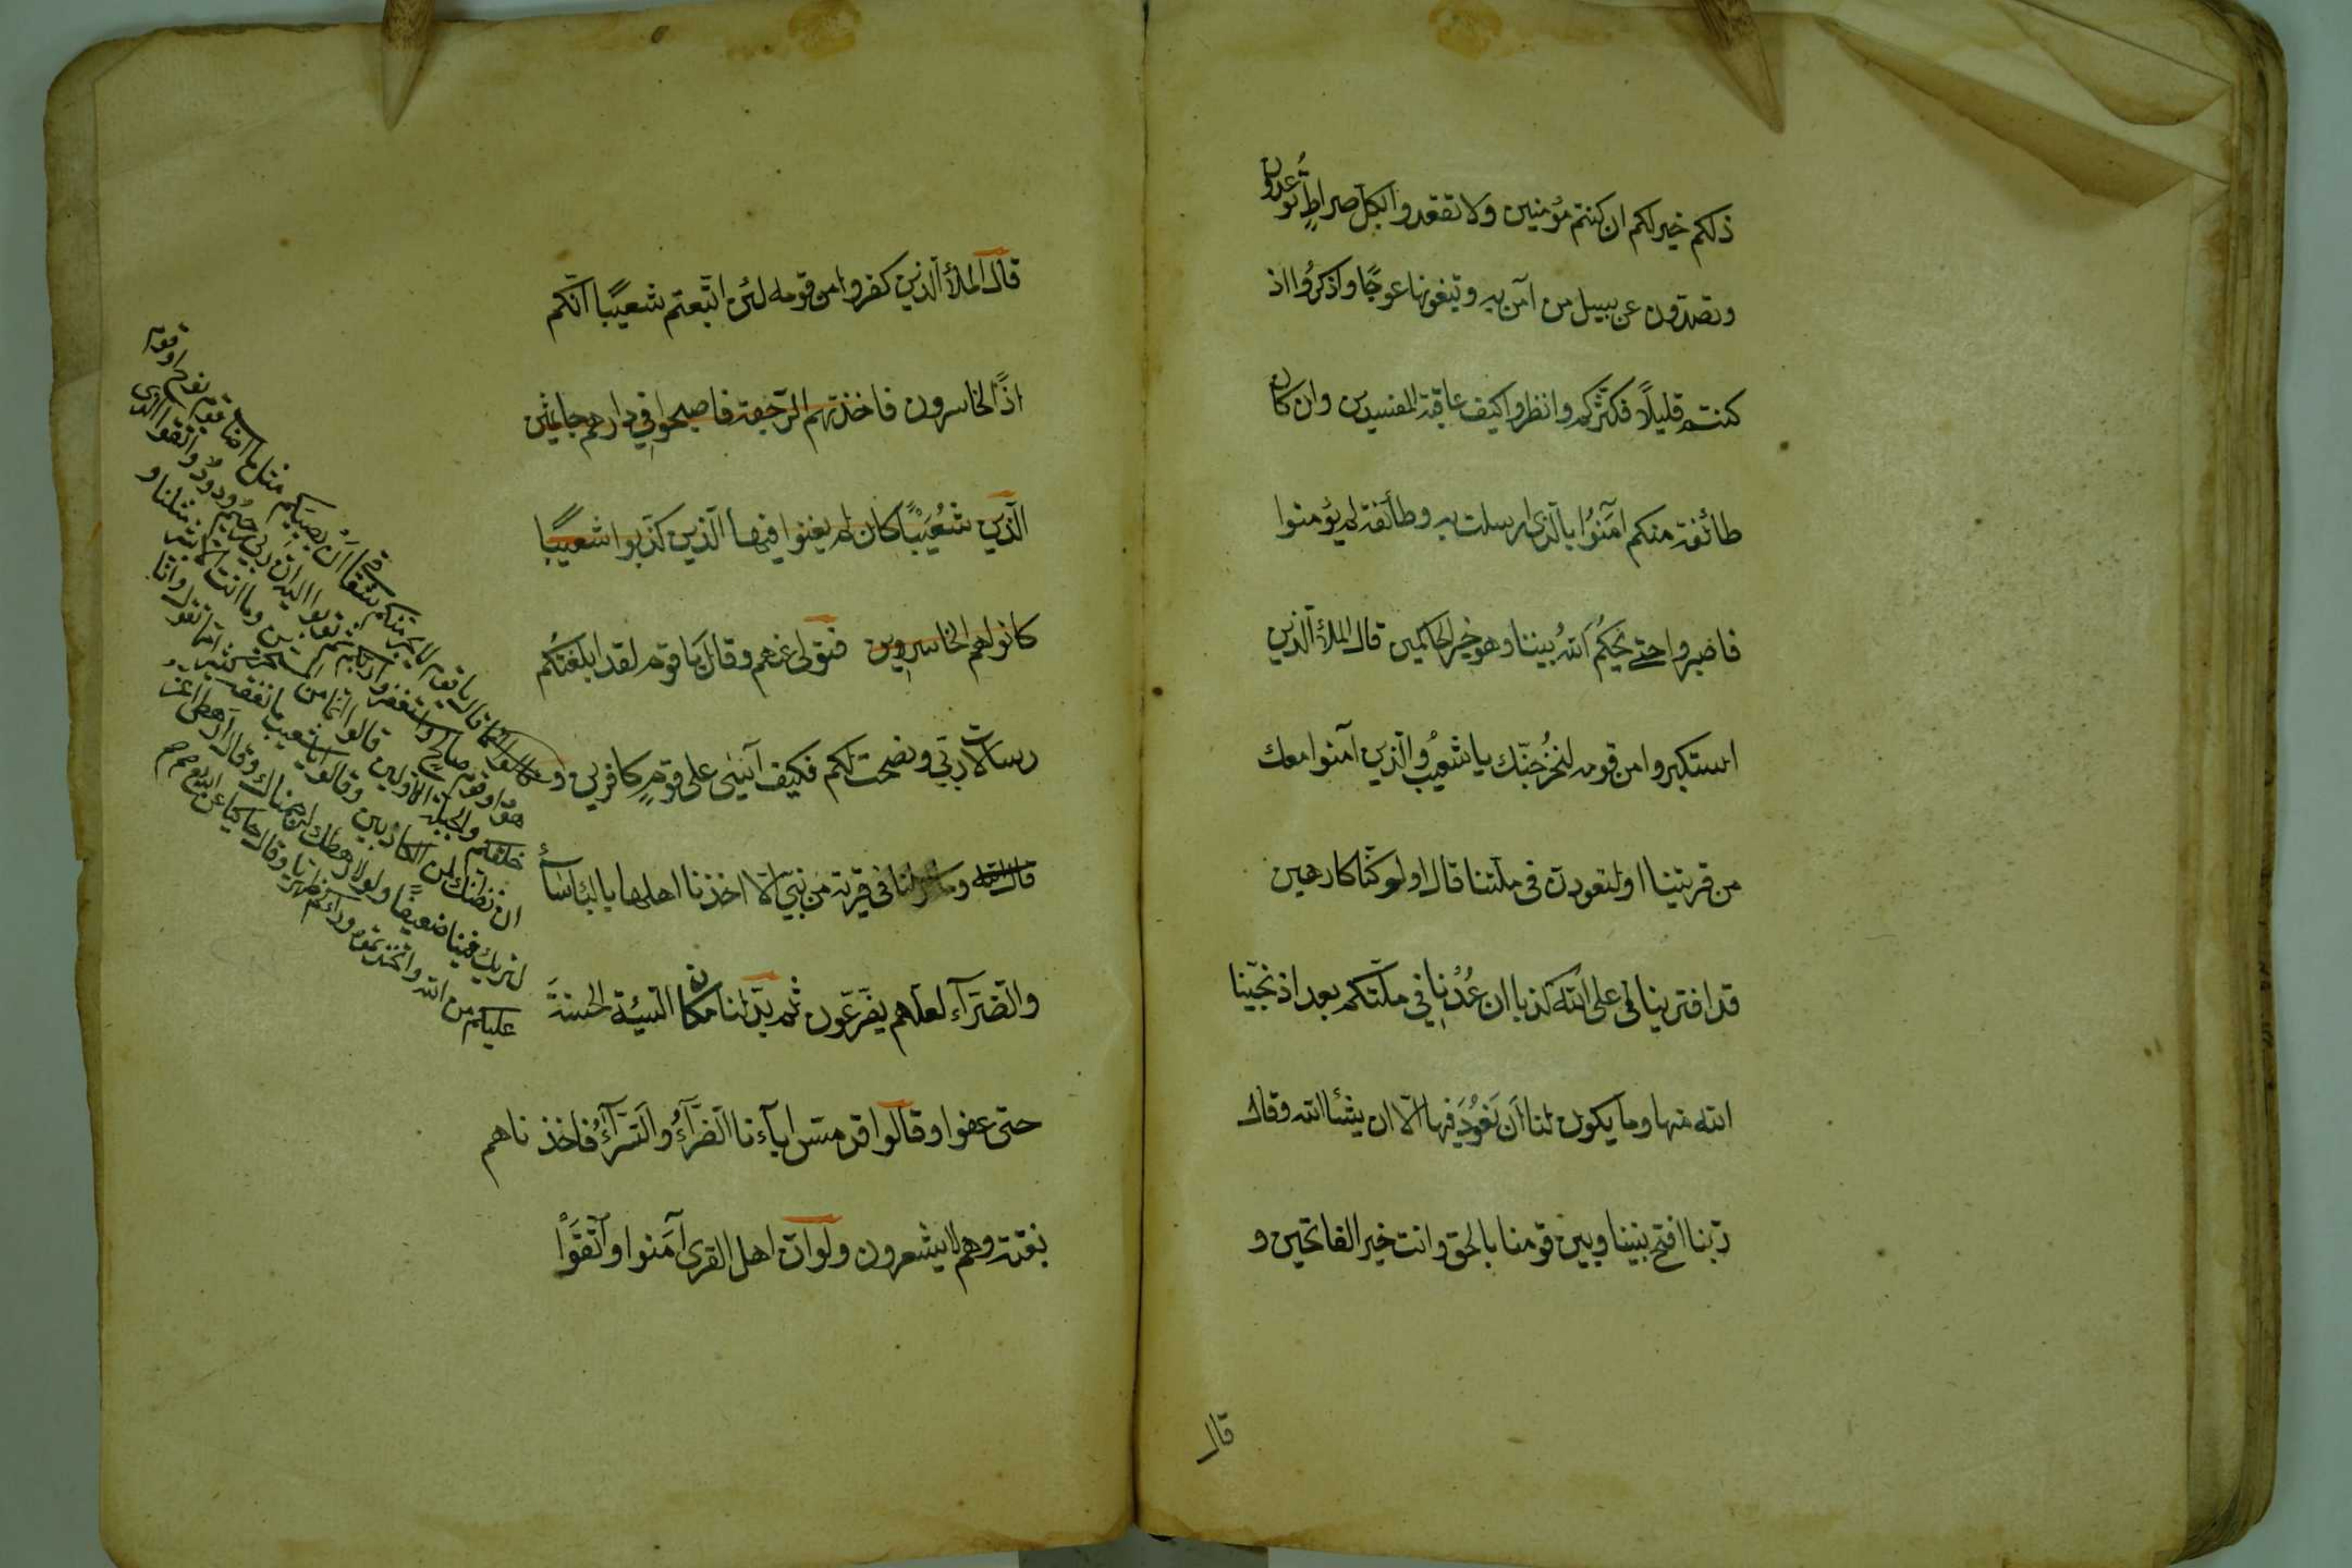 ذلكم خير لكم ان كنتم مؤمنين ولا تقعدوا بكل صراطٍ تُوعدون
وتصدّون عن سبيل من آمن به وتبغونها عوجًا واذكرُوا اذ
كنتم قليلًا فكثّركم وانظروا كيف عاقبة المفسدين وان كان
طائفة منكم آمَنوُا بالّذى ارسلت به وطائفة لم يؤمنوا
فاصبروا حتى يحكُم اللهُ بيننا وهو خير الحاكمين قال الملأ الّذين
استكبروا من قومه لنخُرجنّك يا شعيبُ والّذين آمنوا معك
من قريتنا او لتعودنّ فى ملّتنا قال اولو كنّا كارهين
قد افترينا على اللّه كذبا ان عُدْنا في ملّتكم بعد اذ نجّينا
الله منها وما يكون لنا ان نَعُودَ فيها الّا ان يشأ الله وقال
ربّنا افتح بيننا وبين قومنا بالحق وانت خير الفاتحين و
قال
قال الملأ الّذين كفروا من قومه لئن اتّبعتم شعيبًا انّكم
اذًا لخاسرون فاخذتهم الرّجفة فاصبحوا في دارهم جاثمين
الّذين شُعَيْبًا كان لم يغنوا فيها الّذين كذّبوا شعيبًا
كانوا هم الخاسرين فتولى عنهم وقال يا قوم لقد ابلغتكُم
رسالات ربّي ونصحت لكم فكيف آسٰى على قومٍ كافرين و
قال الله وما ارسلنا فى قرية من نبيّ الّا اخذنا اهلها بالبأسآء
والضّرّآء لعلّهم يضّرّعون ثم بدّلنا مكان السّيئة الحسنةَ
حتى عفوا وقالوا قد مسّ ابآءنا الضّرّآءُ والسّرّآءُ فاخذناهم
بغتة وهم لا يشعرون ولو انّ اهل القرى آمنوا واتّقَوْا
قال يا قوم لا يجرمنكم شقاقي ان يصيبكم مثل ما اصاب قوم نوح او قوم
هود او قوم صالح واستغفروا ربكم ثم توبوا اليه ان ربي رحيم ودود واتقوا الذي
خلقكم والجبلة الاولين قالوا انما انت من المسحرين وما انت الا بشر مثلنا و
ان نظنك لمن الكاذبين وقالوا يا شعيب ما نفقه كثيرا مما تقول وانا
لنريك فينا ضعيفًا ولولا رهطك لرجمناك وقال ارهطي اعز
عليكم من الله واتخذتموه وراءكم ظهريا وقال